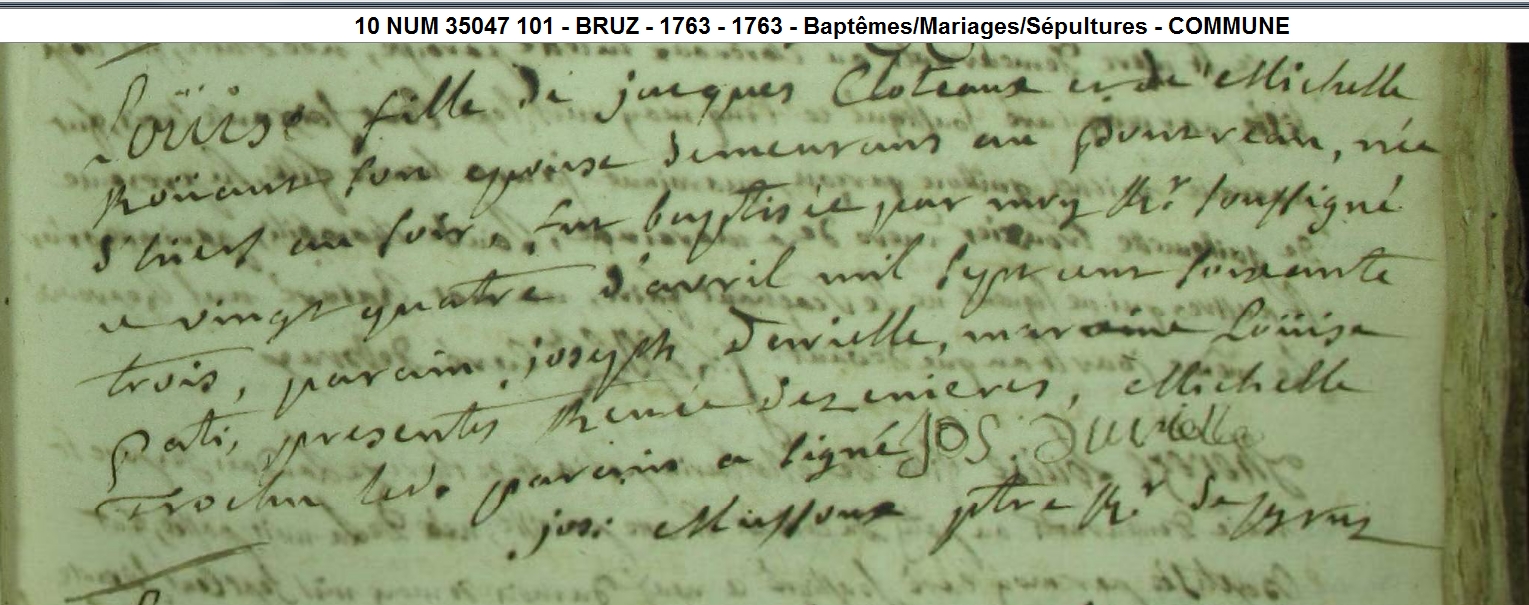 10 NUM 35047 101 - BRUZ - 1763 - 1763 - Baptêmes/Mariages/Sépultures - COMMUNE
Loüise fille de jacques Cloteaux et de Michelle
Roüaut son epouse demeurans au pontrean, née
d'hier au soir, fut baptisée par moy Rr soussigné
ce vingt quatre d'avril mil sept cent soixante
trois, parain joseph Durielle, maraine Loüise
Pati, presentes Renée Dezenieres, Michelle
Trochu led. parain a signé Jos. Durielle
jos: Massoux ptre Rr de Bruz